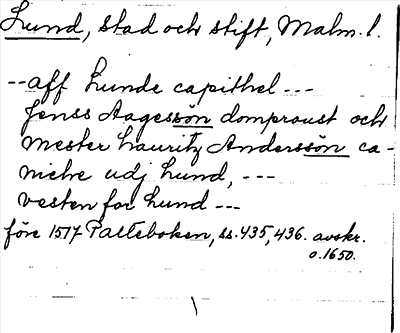 Lund, stad och stift, Malm. l.
-- aff Lunde capithel ---
Jenss Aagessön domproust och
mester Lauritz Anderssön ca-
niche udj Lund, ---
vesten for Lund ---
före 1517 Palteboken, ss. 435, 436. avskr.
o. 1650.